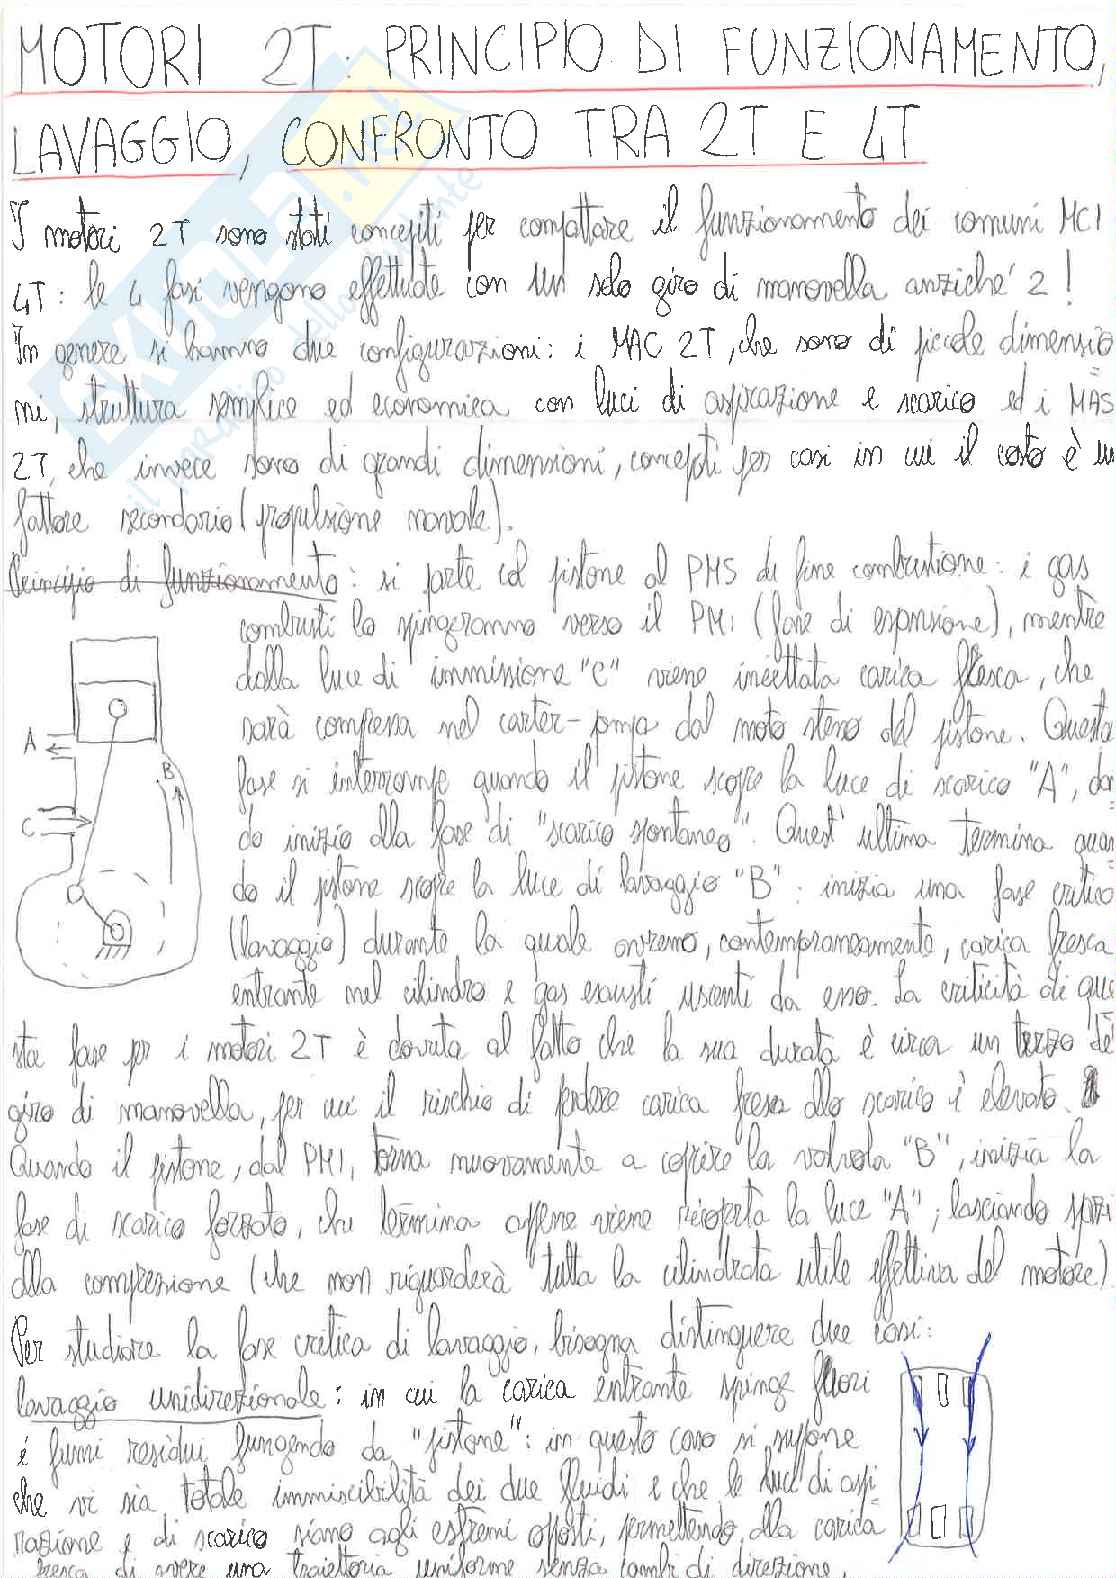 MOTORI 2T: PRINCIPIO DI FUNZIONAMENTO,
LAVAGGIO, CONFRONTO TRA 2T E 4T
I motori 2T sono stati concepiti per compattare il funzionamento dei comuni MCI
4T: le 4 fasi vengono effettuate con un solo giro di manovella anziché 2!
In genere si hanno due configurazioni: i MAC 2T, che sono di piccole dimensio
ni, struttura semplice ed economica con luci di aspirazione e scarico ed i MAS
2T, che invece sono di grandi dimensioni, concepiti per casi in cui il costo è un
fattore secondario (propulsione navale).
Principio di funzionamento: si parte col pistone al PMS di fine combustione: i gas
combusti lo spingeranno verso il PMI (fase di espansione), mentre
dalla luce di immissione "C" viene iniettata carica fresca, che
sarà compressa nel carter-pompa dal moto stesso del pistone. Questa
fase si interrompe quando il pistone scopre la luce di scarico "A", dan
do inizio alla fase di "scarico spontaneo". Quest'ultima termina quan
do il pistone scopre la luce di lavaggio "B": inizia una fase critica
(lavaggio) durante la quale avremo, contemporaneamente, carica fresca
entrante nel cilindro e gas esausti uscenti da esso. La criticità di que
sta fase per i motori 2T è dovuta al fatto che la sua durata è circa un terzo de
giro di manovella, per cui il rischio di perdere carica fresca allo scarico è elevato.
Quando il pistone, dal PMI, torna nuovamente a coprire la valvola "B", inizia la
fase di scarico forzato, che termina appena viene ricoperta la luce "A", lasciando spazi
alla compressione (che non riguarderà tutta la cilindrata utile effettiva del motore).
Per studiare la fase critica di lavaggio, bisogna distinguere due casi:
lavaggio unidirezionale: in cui la carica entrante spinge fuori
i fumi residui fungendo da "pistone": in questo caso si suppone
che vi sia totale immiscibilità dei due fluidi e che le luci di aspi
razione e di scarico siano agli estremi opposti, permettendo alla carica
fresca di avere una traiettoria uniforme senza cambi di direzione.
A
B
C
skuola.net
il paradiso dello studente